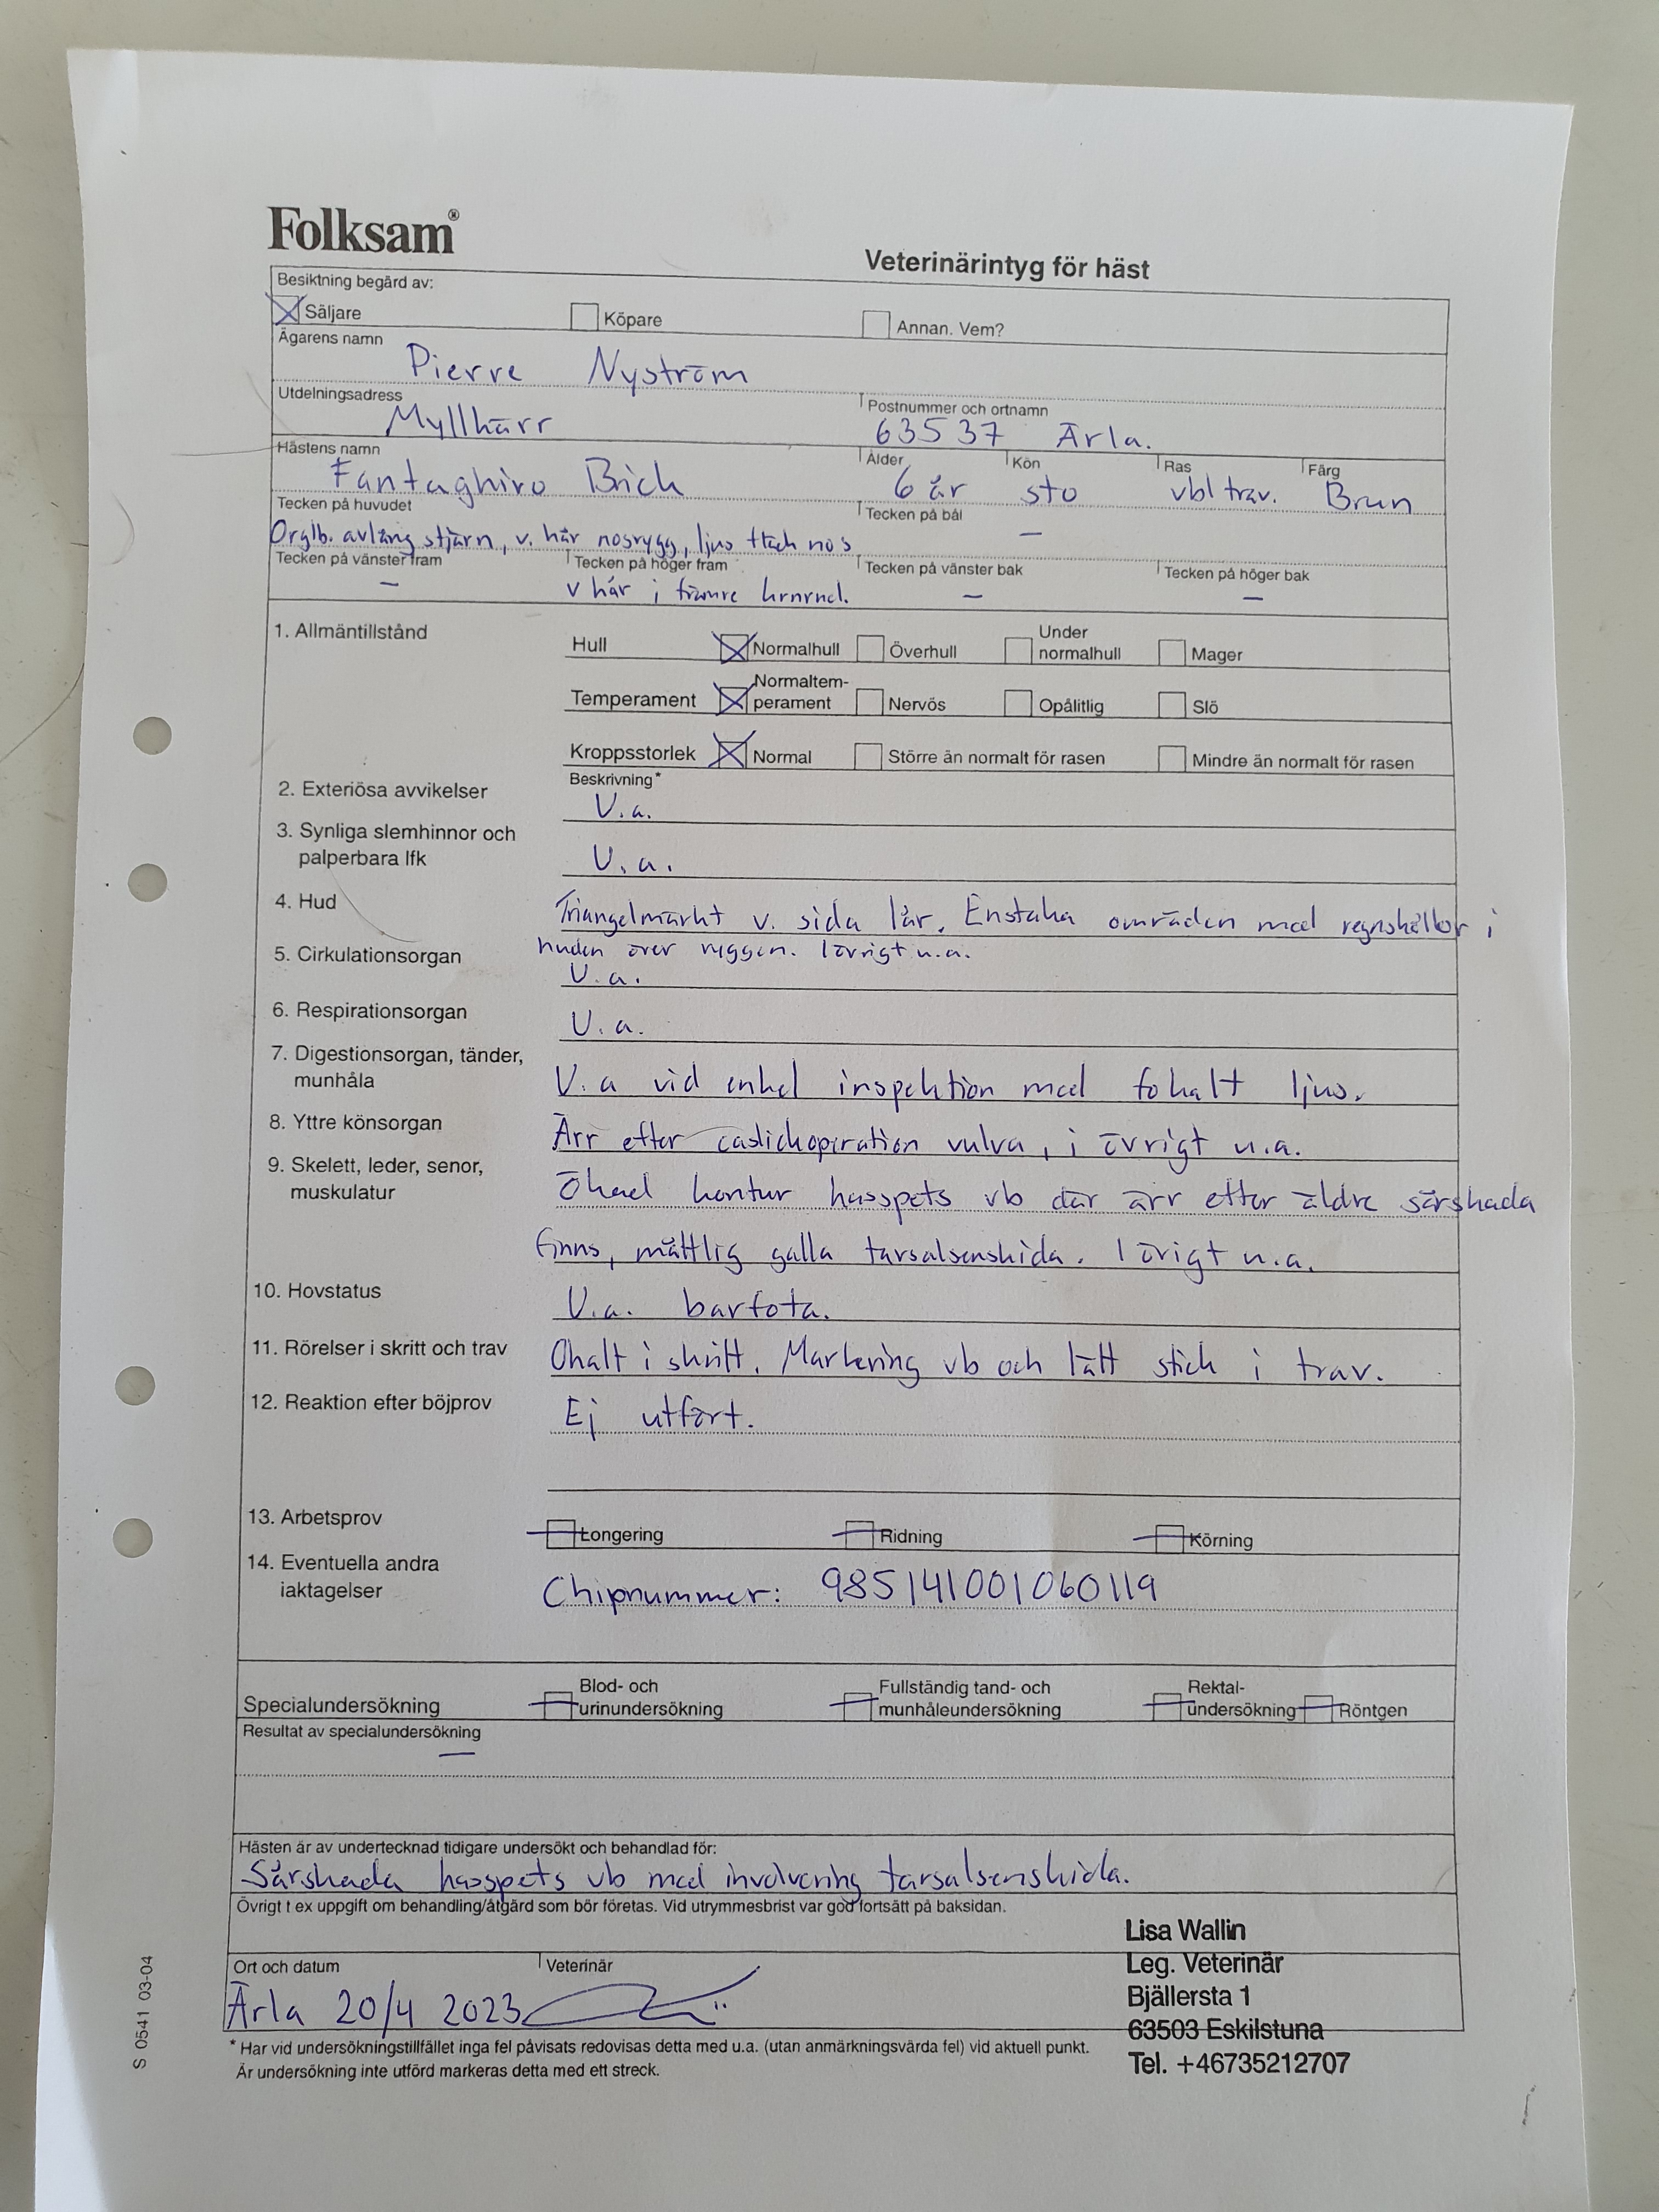 Folksam®
Veterinärintyg för häst
Besiktning begärd av:
Säljare Köpare Annan. Vem?
Ägarens namn
Pierre Nyström
Utdelningsadress Postnummer och ortnamn
Myllkärr 635 37 Ärla.
Hästens namn Ålder Kön Ras Färg
Fantaghiro Brick 6 år sto vbl trav. Brun
Tecken på huvudet Tecken på bål
Orglb. avlång stjärn, v. hår nosrygg, ljus fläck nos —
Tecken på vänster fram Tecken på höger fram Tecken på vänster bak Tecken på höger bak
— v hår i främre krnrnd. — —
1. Allmäntillstånd
Hull Normalhull Överhull Under normalhull Mager
Temperament Normaltem-perament Nervös Opålitlig Slö
Kroppsstorlek Normal Större än normalt för rasen Mindre än normalt för rasen
Beskrivning*
2. Exteriösa avvikelser U.a.
3. Synliga slemhinnor och
palperbara lfk U.a.
4. Hud Triangelmärkt v. sida lår. Enstaka områden med regnskållor i
huden över ryggen. I övrigt u.a.
5. Cirkulationsorgan U.a.
6. Respirationsorgan U.a.
7. Digestionsorgan, tänder,
munhåla U.a vid enkel inspektion med fokalt ljus.
8. Yttre könsorgan Ärr efter caslickoperation vulva, i övrigt u.a.
9. Skelett, leder, senor,
muskulatur Ökad kontur hasspets vb där ärr efter äldre sårskada
finns, måttlig galla tarsalsenskida. I övrigt u.a.
10. Hovstatus U.a. barfota.
11. Rörelser i skritt och trav Ohalt i skritt. Markering vb och lätt stick i trav.
12. Reaktion efter böjprov Ej utfört.
13. Arbetsprov Longering Ridning Körning
14. Eventuella andra
iaktagelser Chipnummer: 985141001060119
Specialundersökning Blod- och urinundersökning Fullständig tand- och munhåleundersökning Rektal-undersökning Röntgen
Resultat av specialundersökning
—
Hästen är av undertecknad tidigare undersökt och behandlad för:
Sårskada hasspets vb med involvering tarsalsenskida.
Övrigt t ex uppgift om behandling/åtgärd som bör företas. Vid utrymmesbrist var god fortsätt på baksidan.
Lisa Wallin
Leg. Veterinär
Bjällersta 1
63503 Eskilstuna
Tel. +46735212707
Ort och datum Veterinär
Ärla 20/4 2023
* Har vid undersökningstillfället inga fel påvisats redovisas detta med u.a. (utan anmärkningsvärda fel) vid aktuell punkt.
Är undersökning inte utförd markeras detta med ett streck.
S 0541 03-04